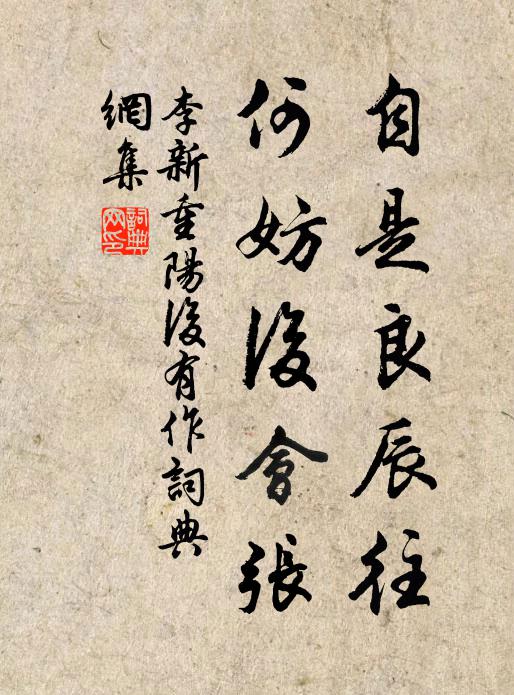 自是良辰往
何妨後會張
李新重陽後有作詞典
網集
詞典網印